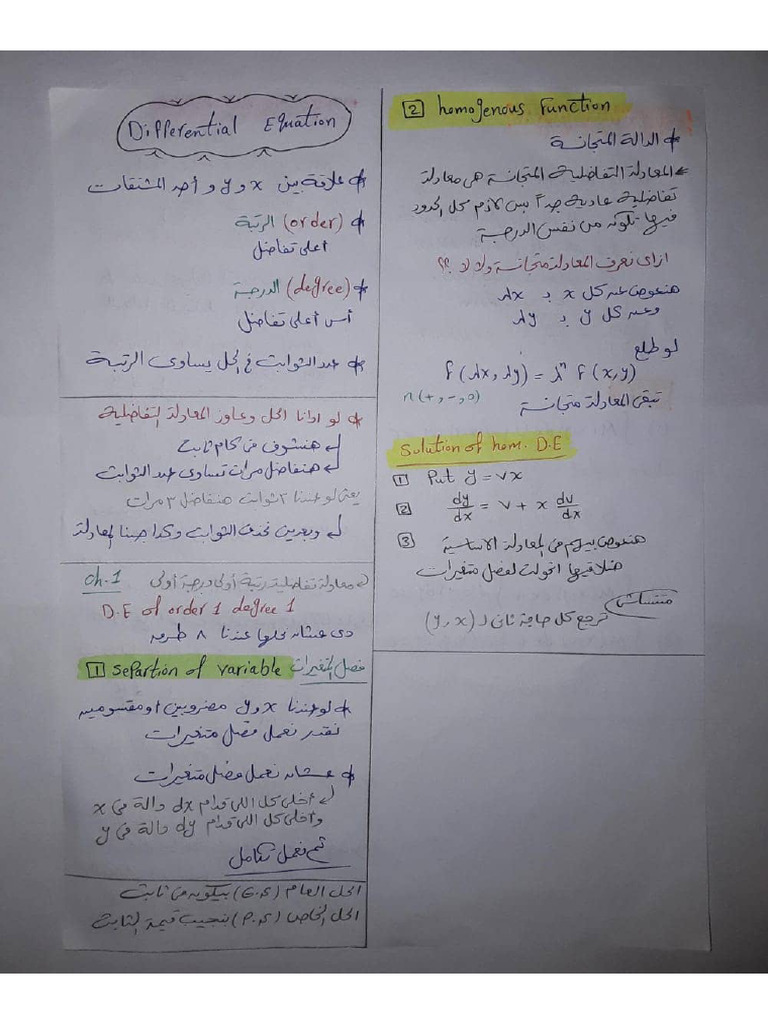 Differential Equation
* علاقة بين x و y و أحد المشتقات
* (order) الرتبة
أعلى تفاضل
* (degree) الدرجة
أس أعلى تفاضل
* عدد الثوابت في الحل يساوى الرتبة
* لو ادانا الحل وعاوز المعادلة التفاضلية
↲ هنشوف في كام ثابت
↲ هنفاضل مرات تساوى عدد الثوابت
يعنى لو عندنا ٣ ثوابت هنفاضل ٣ مرات
↲ وبعدين نحذف الثوابت وكدا جبنا المعادلة
ch.1 ↲ معادلة تفاضلية رتبة أولى ودرجة أولى
D.E of order 1 degree 1
دى عشان نحلها عندنا ٨ طرق
1 separtion of variable فصل المتغيرات
* لو عندنا x و y مضروبين او مقسومين
نقدر نعمل فصل متغيرات
* عشان نعمل فصل متغيرات
↲ أخلى كل اللى قدام dx دالة فى x
وأخلى كل اللى قدام dy دالة فى y
ثم نعمل تكامل
الحل العام (G.S) بيكون فى ثابت
الحل الخاص (P.S) بنجيب قيمة الثابت
2 homogenous Function
* الدالة المتجانسة
← المعادلة التفاضلية المتجانسة هى معادلة
تفاضلية عادية جداً بس لازم كل الحدود
فيها تكون من نفس الدرجة
ازاى نعرف المعادلة متجانسة ولا لا ؟؟
هنعوض عن كل x بـ λx
وعن كل y بـ λy
لو طلع
f(λx, λy) = λⁿ f(x,y)
n(+,-,0) تبقى المعادلة متجانسة
Sulution of hom. D.E
1 Put y = vx
2 dy/dx = v + x dv/dx
3 هنعوض بيهم فى المعادلة الاساسية
هنلاقيها اتحولت لفصل متغيرات
متنساش ترجع كل حاجة تانى لـ (x و y)